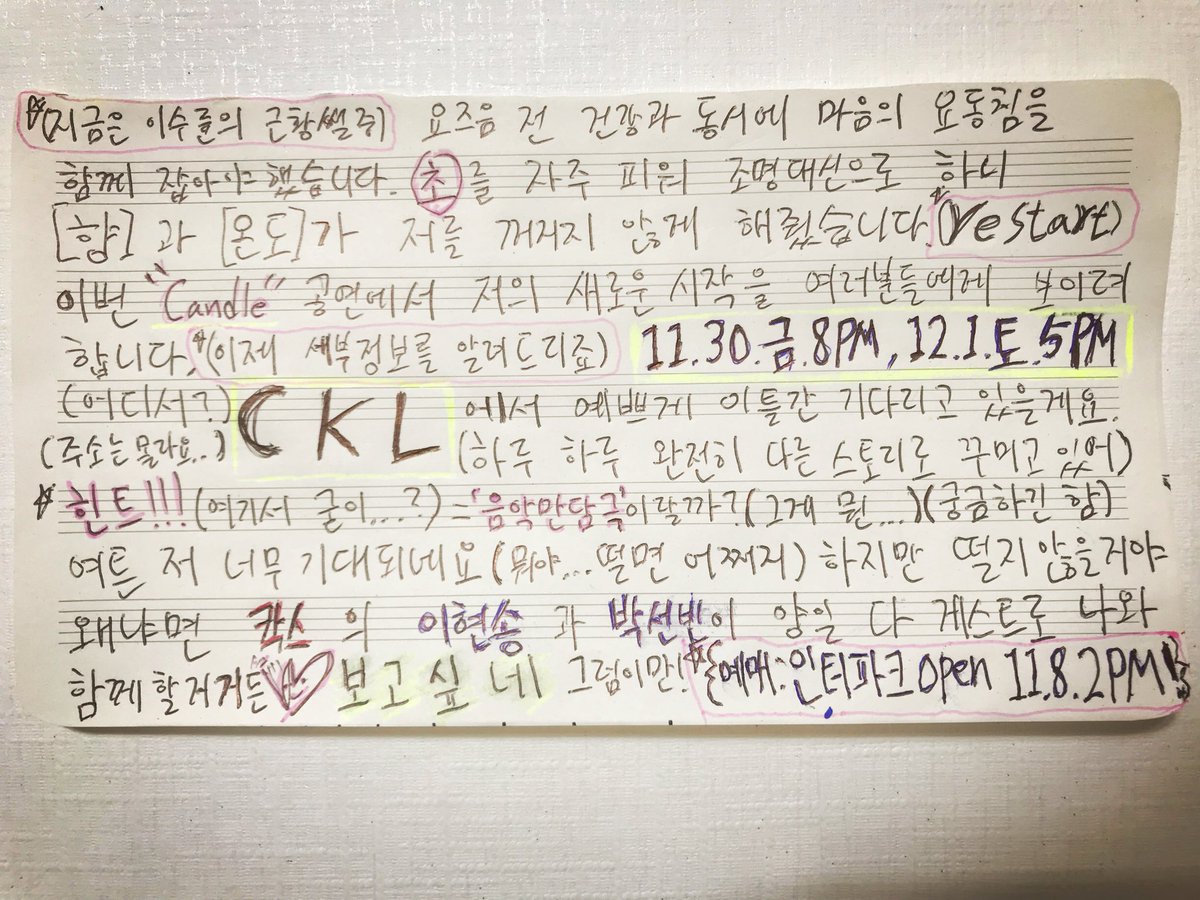 (지금은 이수률의 근황썰주) 요즈음 전 건강과 동시에 마음의 요동침을
함께 잡아야했습니다. 초를 자주 피워 조명대신으로 하니
[향]과 [온도]가 저를 꺼지지 않게 해줬습니다 (restart)
이번 "Candle" 공연에서 저의 새로운 시작을 여러분들에게 보이려
합니다. (이제 세부정보를 알려드리죠) 11.30.금.8PM, 12.1.토.5PM
(어디서?) CKL 에서 예쁘게 이틀간 기다리고 있을게요.
(주소는 몰라요..) (하루 하루 완전히 다른 스토리로 꾸미고 있어)
힌트!!! (여기서 굳이...?) = '음악만담극'이랄까? (그게 뭔...) (궁금하긴 함)
여튼 저 너무 기대되네요 (뭐야... 떨면 어쩌지) 하지만 떨지 않을거야
왜냐면 칵스의 이현송과 박선빈이 양일 다 게스트로 나와
함께 할거거든 보고싶네 그럼이만! 예매:인터파크 open 11.8.2PM